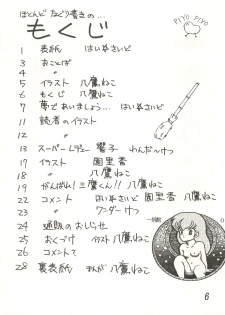 ほとんど なぐり書きの...
PIYO PIYO
もくじ
1 表紙 はい≠さいど
3 おことば 〃
5 イラスト 八鷹ねこ
6 もくじ 八鷹ねこ
7 夢であいましょう... はい≠さいど
11 読者のイラスト
12 〃
13 スーパーLヴュー 響子 わんだーけつ
17 イラスト 団里香
18 〃 八鷹ねこ
19 がんばれ!三鷹くん!! 八鷹ねこ
22 コメント はい≠さいど 団里香 八鷹ねこ
23 〃 ワンダーけつ
24 通販のおしらせ
25 おくづけ イラスト 八鷹ねこ
26 コメント
28 裏表紙 まんが 八鷹ねこ
一刻館
6